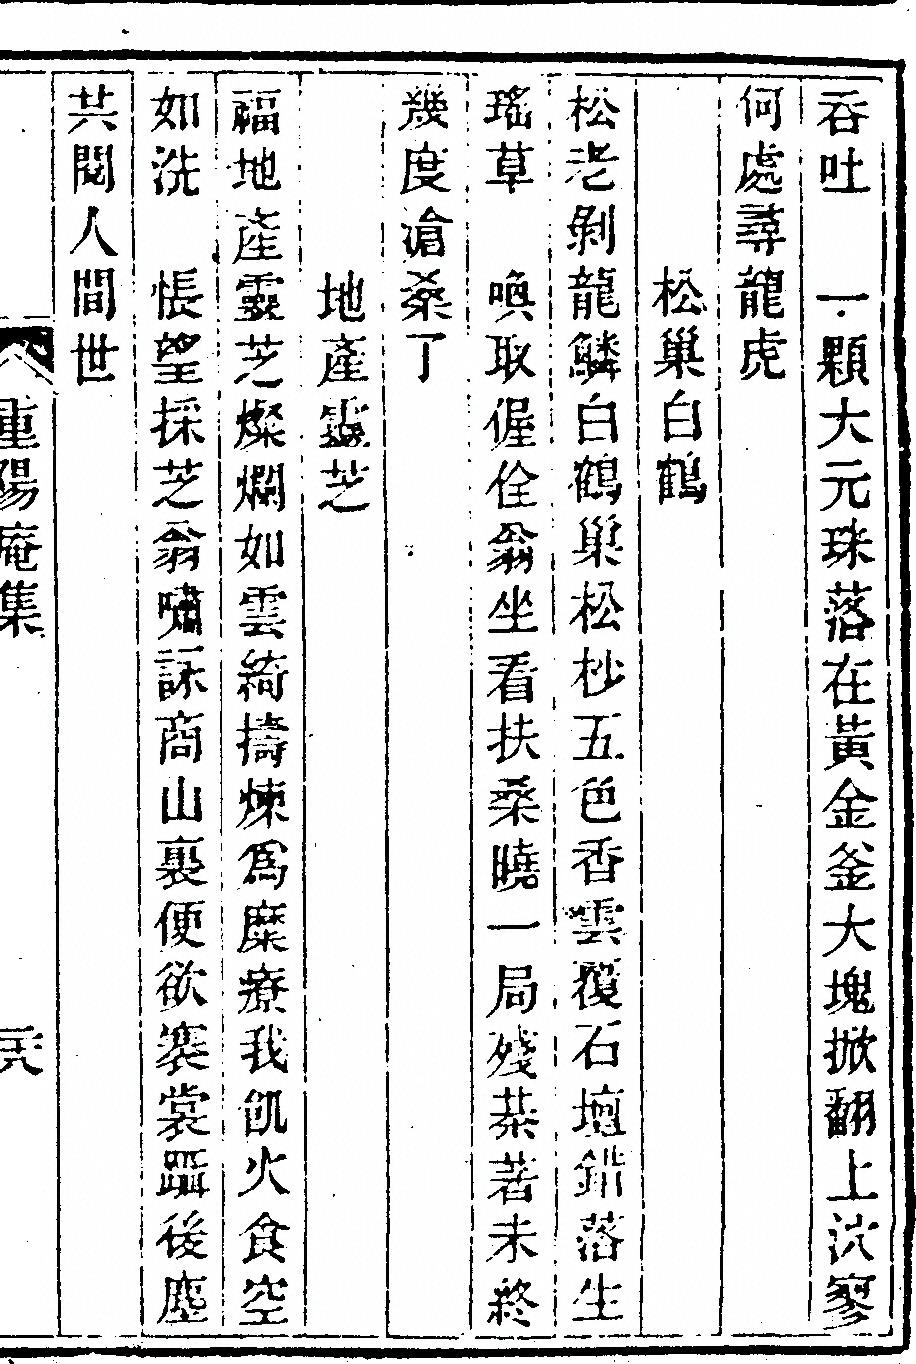 吞吐　一顆大元珠落在黃金釜大塊掀翻上泬寥
何處尋龍虎
松巢白鶴
松老剝龍鱗白鶴巢松杪五色香雲覆石壇錯落生
瑤草　喚取偓佺翁坐看扶桑曉一局殘棊著未終
幾度滄桑了
地產靈芝
福地產靈芝燦爛如雲綺擣煉爲糜療我飢火食空
如洗　悵望採芝翁嘯詠商山裏便欲褰裳躡後塵
共閱人間世
重陽庵集